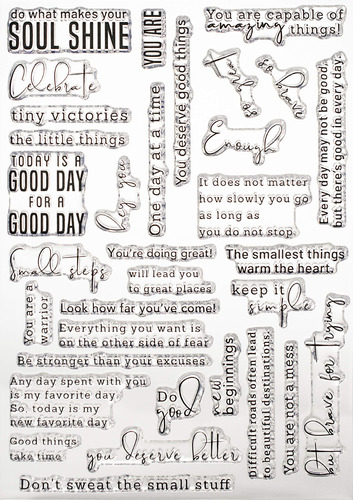 do what makes your
SOUL SHINE
YOU ARE
You are capable of
amazing things!
Celebrate
tiny victories
the little things
TODAY IS A
GOOD DAY
FOR A
GOOD DAY
hey you
One day at a time
You deserve good things
so brave
Enough
Every day may not be good,
but there's good in every day.
It does not matter
how slowly you go
as long as
you do not stop
Small steps
You're doing great!
will lead you
to great places
The smallest things
warm the heart.
keep it
simple
You are a
warrior
Look how far you've come!
Everything you want is
on the other side of fear
Be stronger than your excuses
Any day spent with you
is my favorite day.
So, today is my
new favorite day
Do
good
new
beginnings
Difficult roads often lead
to beautiful destinations.
You are not a mess
but brave for trying
Good things
take time
you deserve better
Don't sweat the small stuff